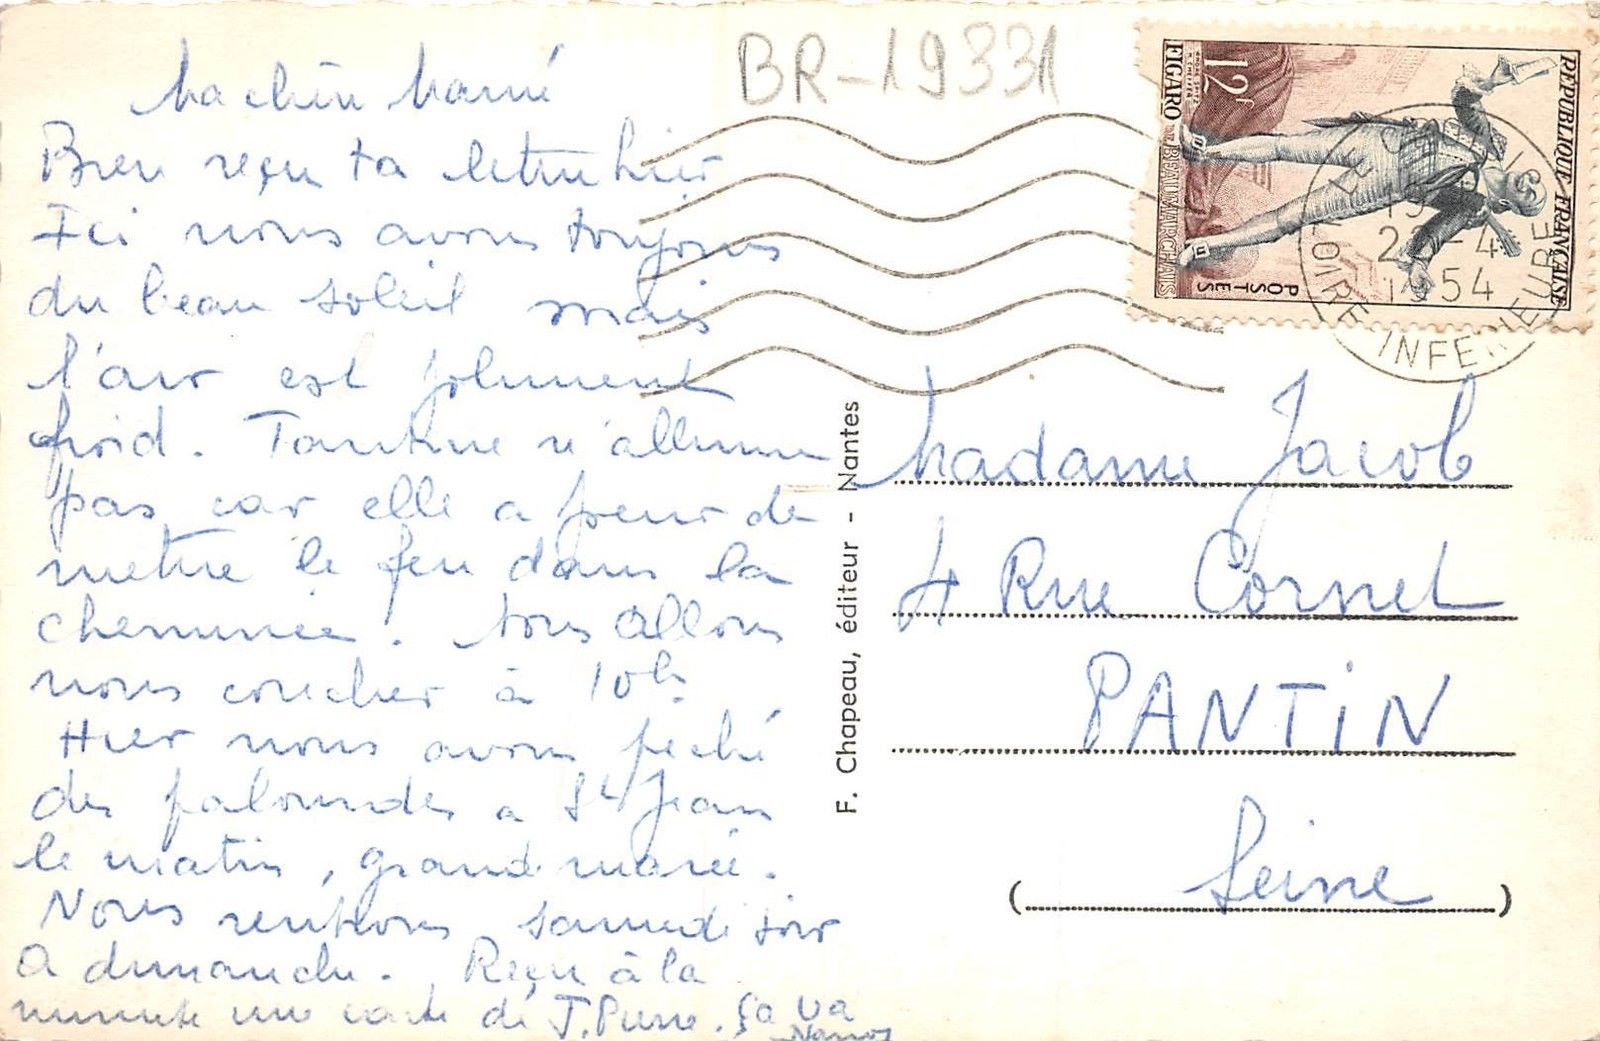 BR-19331
Ma chère Mamé
Bien reçu ta lettre hier
Ici nous avons toujours
du beau soleil mais
l'air est joliment
froid. Tantine n'allume
pas car elle a peur de
mettre le feu dans la
cheminée. Nous allons
nous coucher à 10h.
Hier nous avons pêché
des palourdes a St Jean
le matin, grande marée.
Nous rentrons samedi soir
A dimanche. Reçu à la
minute une carte de J.Pierre. ça va
F. Chapeau, éditeur - Nantes
REPUBLIQUE FRANÇAISE
POSTES
12f
FIGARO
BEAUMARCHAIS
22-4
1954
LOIRE INFERIEURE
Madame Jacob
4 Rue Cornet
PANTIN
(Seine)